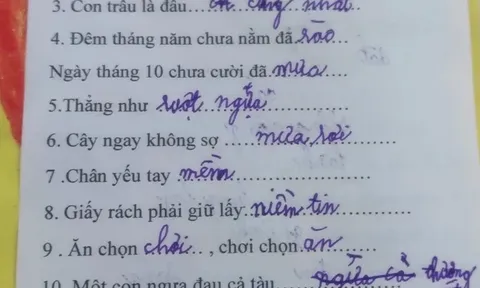 3. Con trâu là đầu....
4. Đêm tháng năm chưa nằm đã sáo...
Ngày tháng 10 chưa cười đã mưa....
5.Thẳng như ruột ngựa..............
6. Cây ngay không sợ .....mưa rơi.....
7 .Chân yếu tay mềm....................
8. Giấy rách phải giữ lấy..niềm tin............
9 . Ăn chọn chơi.. , chơi chọn.ăn.......
10. Một con ngựa đau cả tàu thường